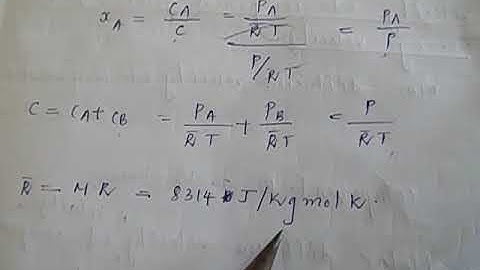 x_A = C_A/C = (P_A/R̄T)/(P/R̄T) = P_A/P
C = C_A + C_B = P_A/R̄T + P_B/R̄T = P/R̄T
R̄ = M R = 8314 J/Kg mol K.